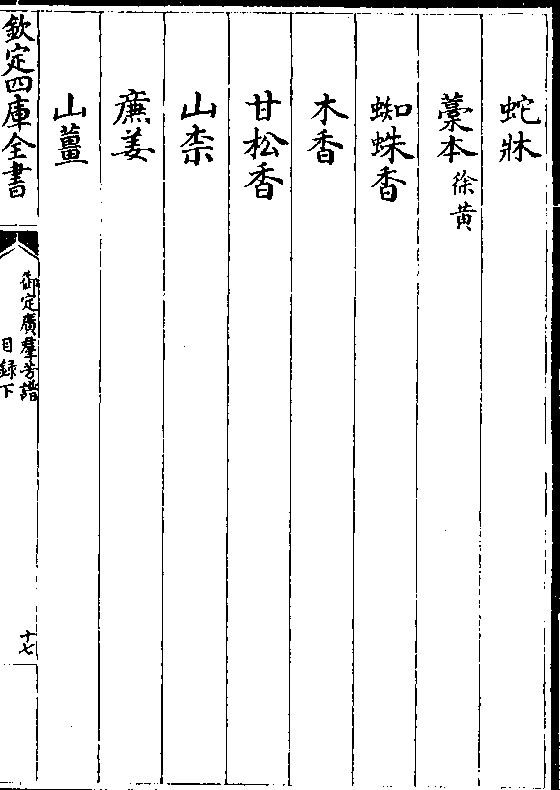 蛇牀
藁本徐黄
蜘蛛香
木香
甘松香
山柰
廉姜
山薑
欽定四庫全書
御定廣羣芳譜
目録下
十七